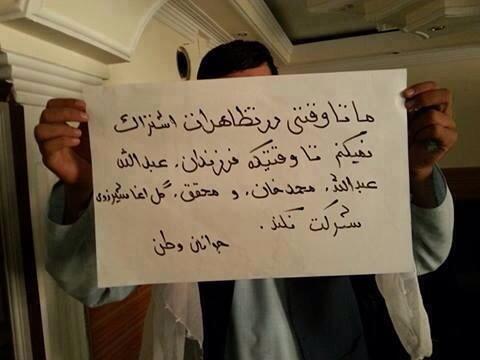 ما تا وقتی در تظاهرات اشتراک
نمیکنم تا وقتیکه فرزندان، عبدالله
عبدالله، محمد خان، و محقق، گل اغا شیرزوی
شرکت نکند.
جوانان وطن